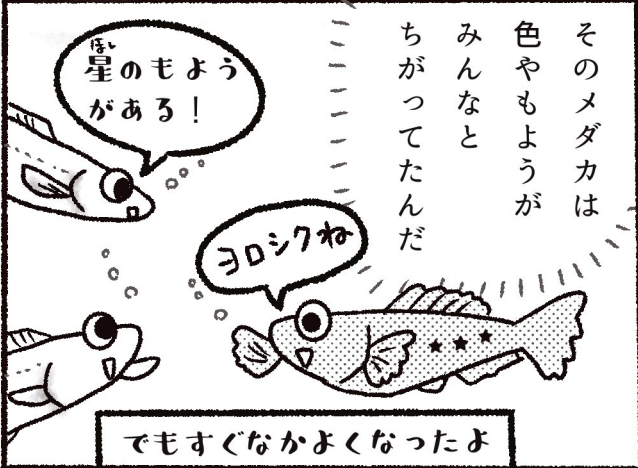 そのメダカは
色やもようが
みんなと
ちがってたんだ
星のもよう
がある！
ヨロシクね
でもすぐなかよくなったよ